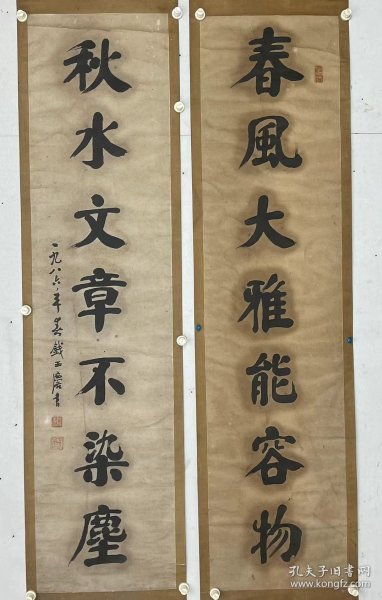 春風大雅能容物
秋水文章不染塵
一九八六年春戲
書
孔夫子旧书网
www.kongfz.com